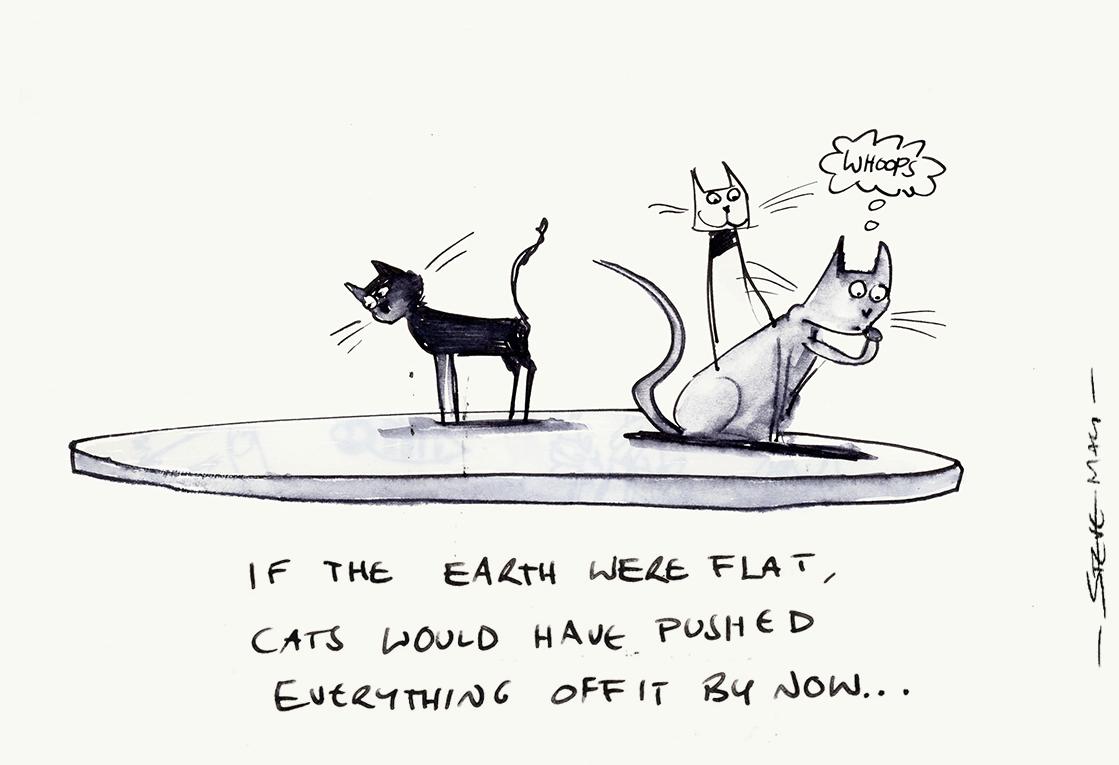 WHOOPS
IF THE EARTH WERE FLAT,
CATS WOULD HAVE PUSHED
EVERYTHING OFF IT BY NOW...
— STEVE MAKI —